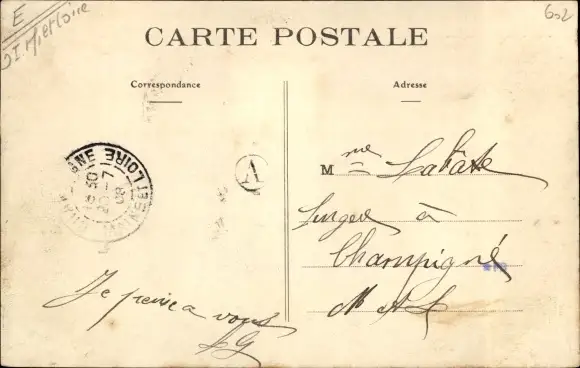 E
M et Loire
602
CARTE POSTALE
Correspondance
Adresse
MAINE-ET-LOIRE
50
20-7
08
A
Mme Labâte
Lingère à
Champigné
M & L
Je pense a vous
LG